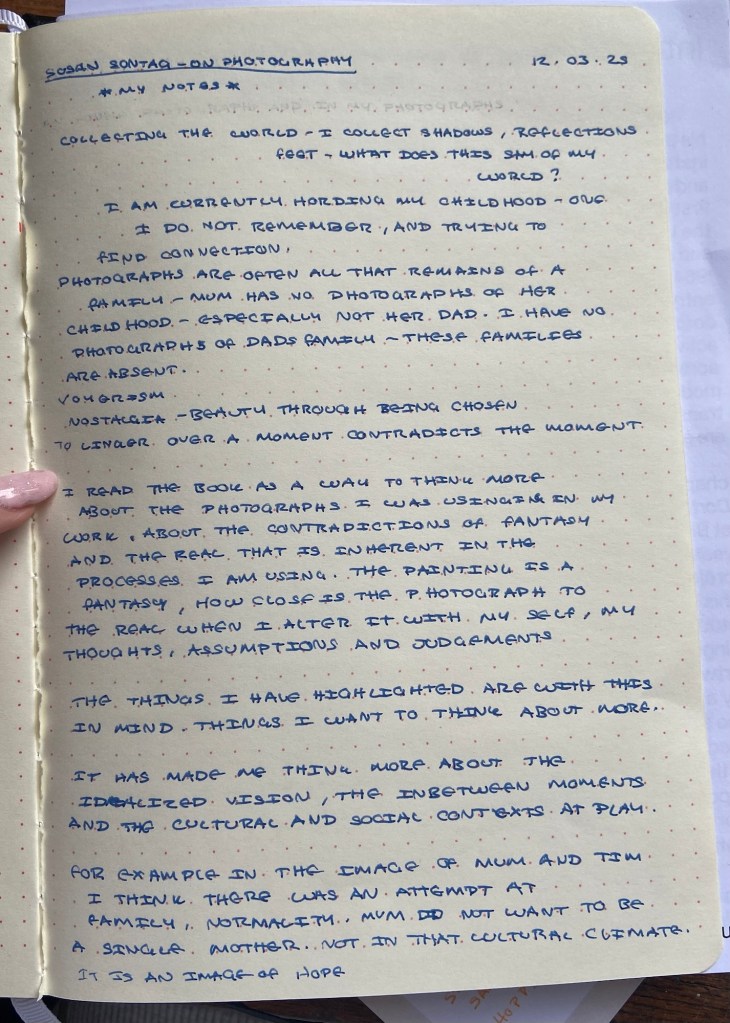 SUSAN SONTAG - ON PHOTOGRAPHY 12.03.25
* MY NOTES *
COLLECTING THE WORLD - I COLLECT SHADOWS, REFLECTIONS
FEET - WHAT DOES THIS SAY OF MY
WORLD?
I AM CURRENTLY HORDING MY CHILDHOOD - ONE
I DO NOT REMEMBER, AND TRYING TO
FIND CONNECTION.
PHOTOGRAPHS ARE OFTEN ALL THAT REMAINS OF A
FAMILY - MUM HAS NO PHOTOGRAPHS OF HER
CHILDHOOD - ESPECIALLY NOT HER DAD. I HAVE NO
PHOTOGRAPHS OF DADS FAMILY - THESE FAMILIES
ARE ABSENT.
VOYERISM
NOSTALGIA - BEAUTY THROUGH BEING CHOSEN
TO LINGER OVER A MOMENT CONTRADICTS THE MOMENT
I READ THE BOOK AS A WAY TO THINK MORE
ABOUT THE PHOTOGRAPHS I WAS USINGING IN MY
WORK. ABOUT THE CONTRADICTIONS OF FANTASY
AND THE REAL THAT IS INHERENT IN THE
PROCESSES I AM USING. THE PAINTING IS A
FANTASY, HOW CLOSE IS THE PHOTOGRAPH TO
THE REAL WHEN I ALTER IT WITH MY SELF, MY
THOUGHTS, ASSUMPTIONS AND JUDGEMENTS
THE THINGS I HAVE HIGHLIGHTED ARE WITH THIS
IN MIND. THINGS I WANT TO THINK ABOUT MORE.
IT HAS MADE ME THINK MORE ABOUT THE
IDEALIZED VISION, THE INBETWEEN MOMENTS
AND THE CULTURAL AND SOCIAL CONTEXTS AT PLAY.
FOR EXAMPLE IN THE IMAGE OF MUM AND TIM
I THINK THERE WAS AN ATTEMPT AT
FAMILY, NORMALITY. MUM DID NOT WANT TO BE
A SINGLE MOTHER. NOT IN THAT CULTURAL CLIMATE.
IT IS AN IMAGE OF HOPE